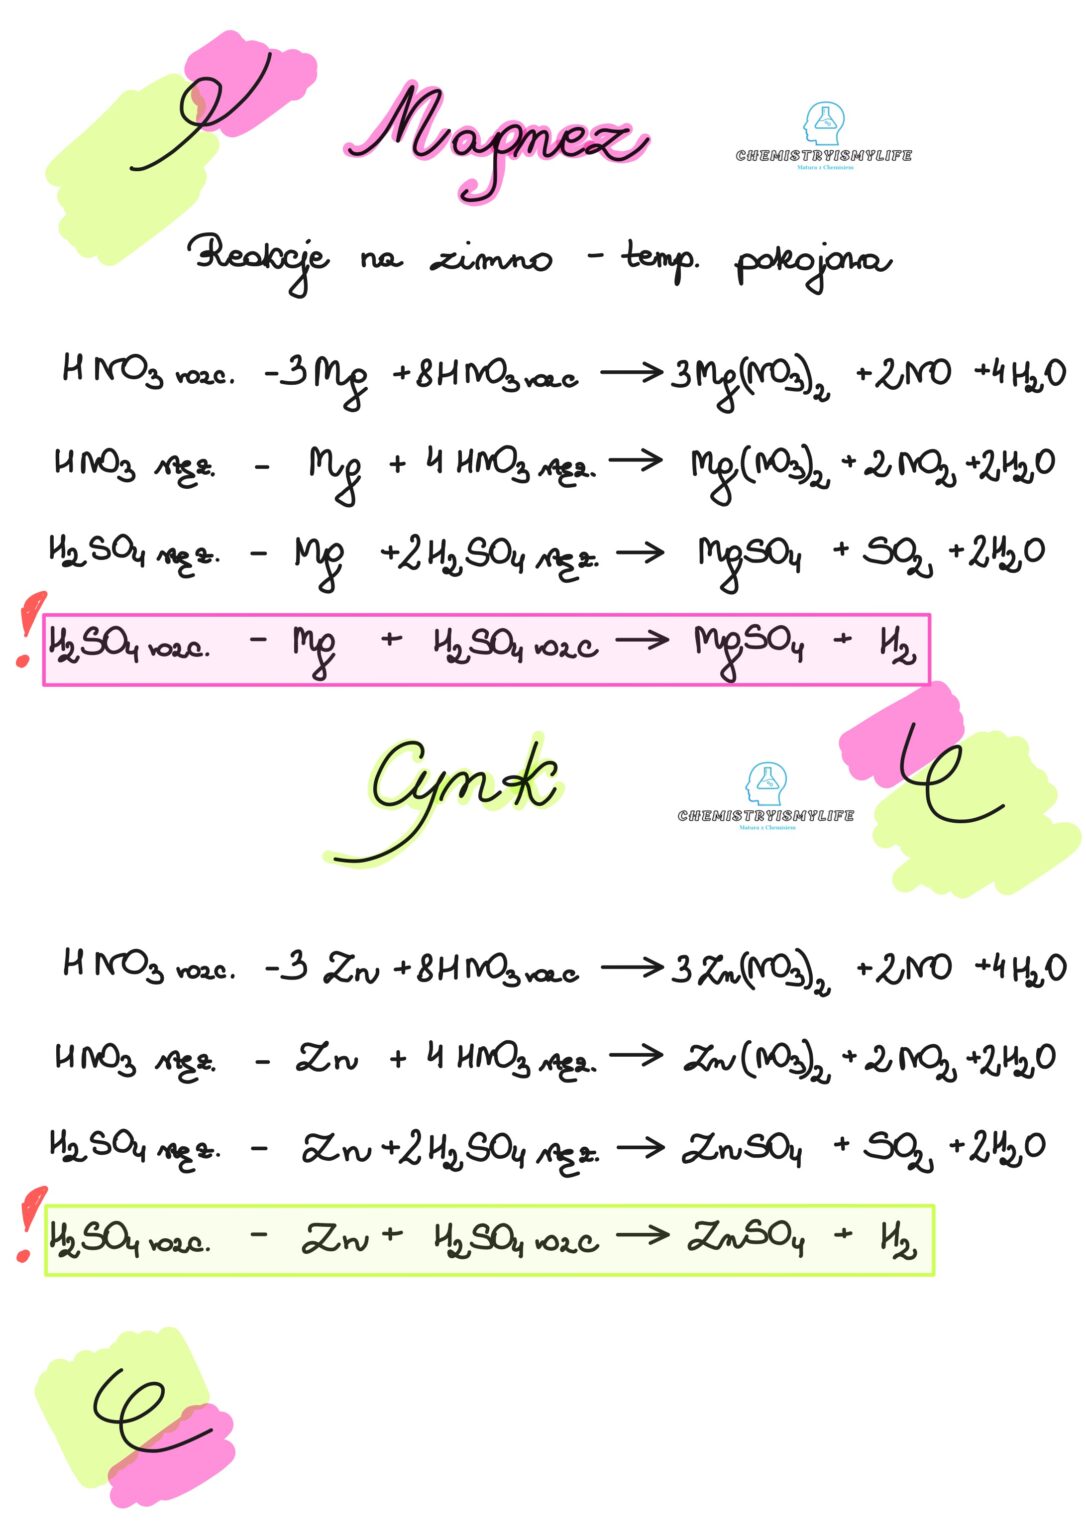 Magnez
CHEMISTRYISMYLIFE
Matura z Chemistem
Reakcje na zimno - temp. pokojowa
HNO₃ rozc. - 3Mg + 8HNO₃ rozc → 3Mg(NO₃)₂ + 2NO + 4H₂O
HNO₃ stęż. - Mg + 4HNO₃ stęż. → Mg(NO₃)₂ + 2NO₂ + 2H₂O
H₂SO₄ stęż. - Mg + 2H₂SO₄ stęż. → MgSO₄ + SO₂ + 2H₂O
! H₂SO₄ rozc. - Mg + H₂SO₄ rozc → MgSO₄ + H₂
Cynk
CHEMISTRYISMYLIFE
Matura z Chemistem
HNO₃ rozc. - 3Zn + 8HNO₃ rozc → 3Zn(NO₃)₂ + 2NO + 4H₂O
HNO₃ stęż. - Zn + 4HNO₃ stęż. → Zn(NO₃)₂ + 2NO₂ + 2H₂O
H₂SO₄ stęż. - Zn + 2H₂SO₄ stęż. → ZnSO₄ + SO₂ + 2H₂O
! H₂SO₄ rozc. - Zn + H₂SO₄ rozc → ZnSO₄ + H₂